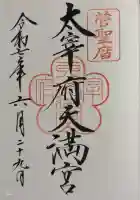 菅聖廟
太宰府天満宮
令和二年六月二十九日